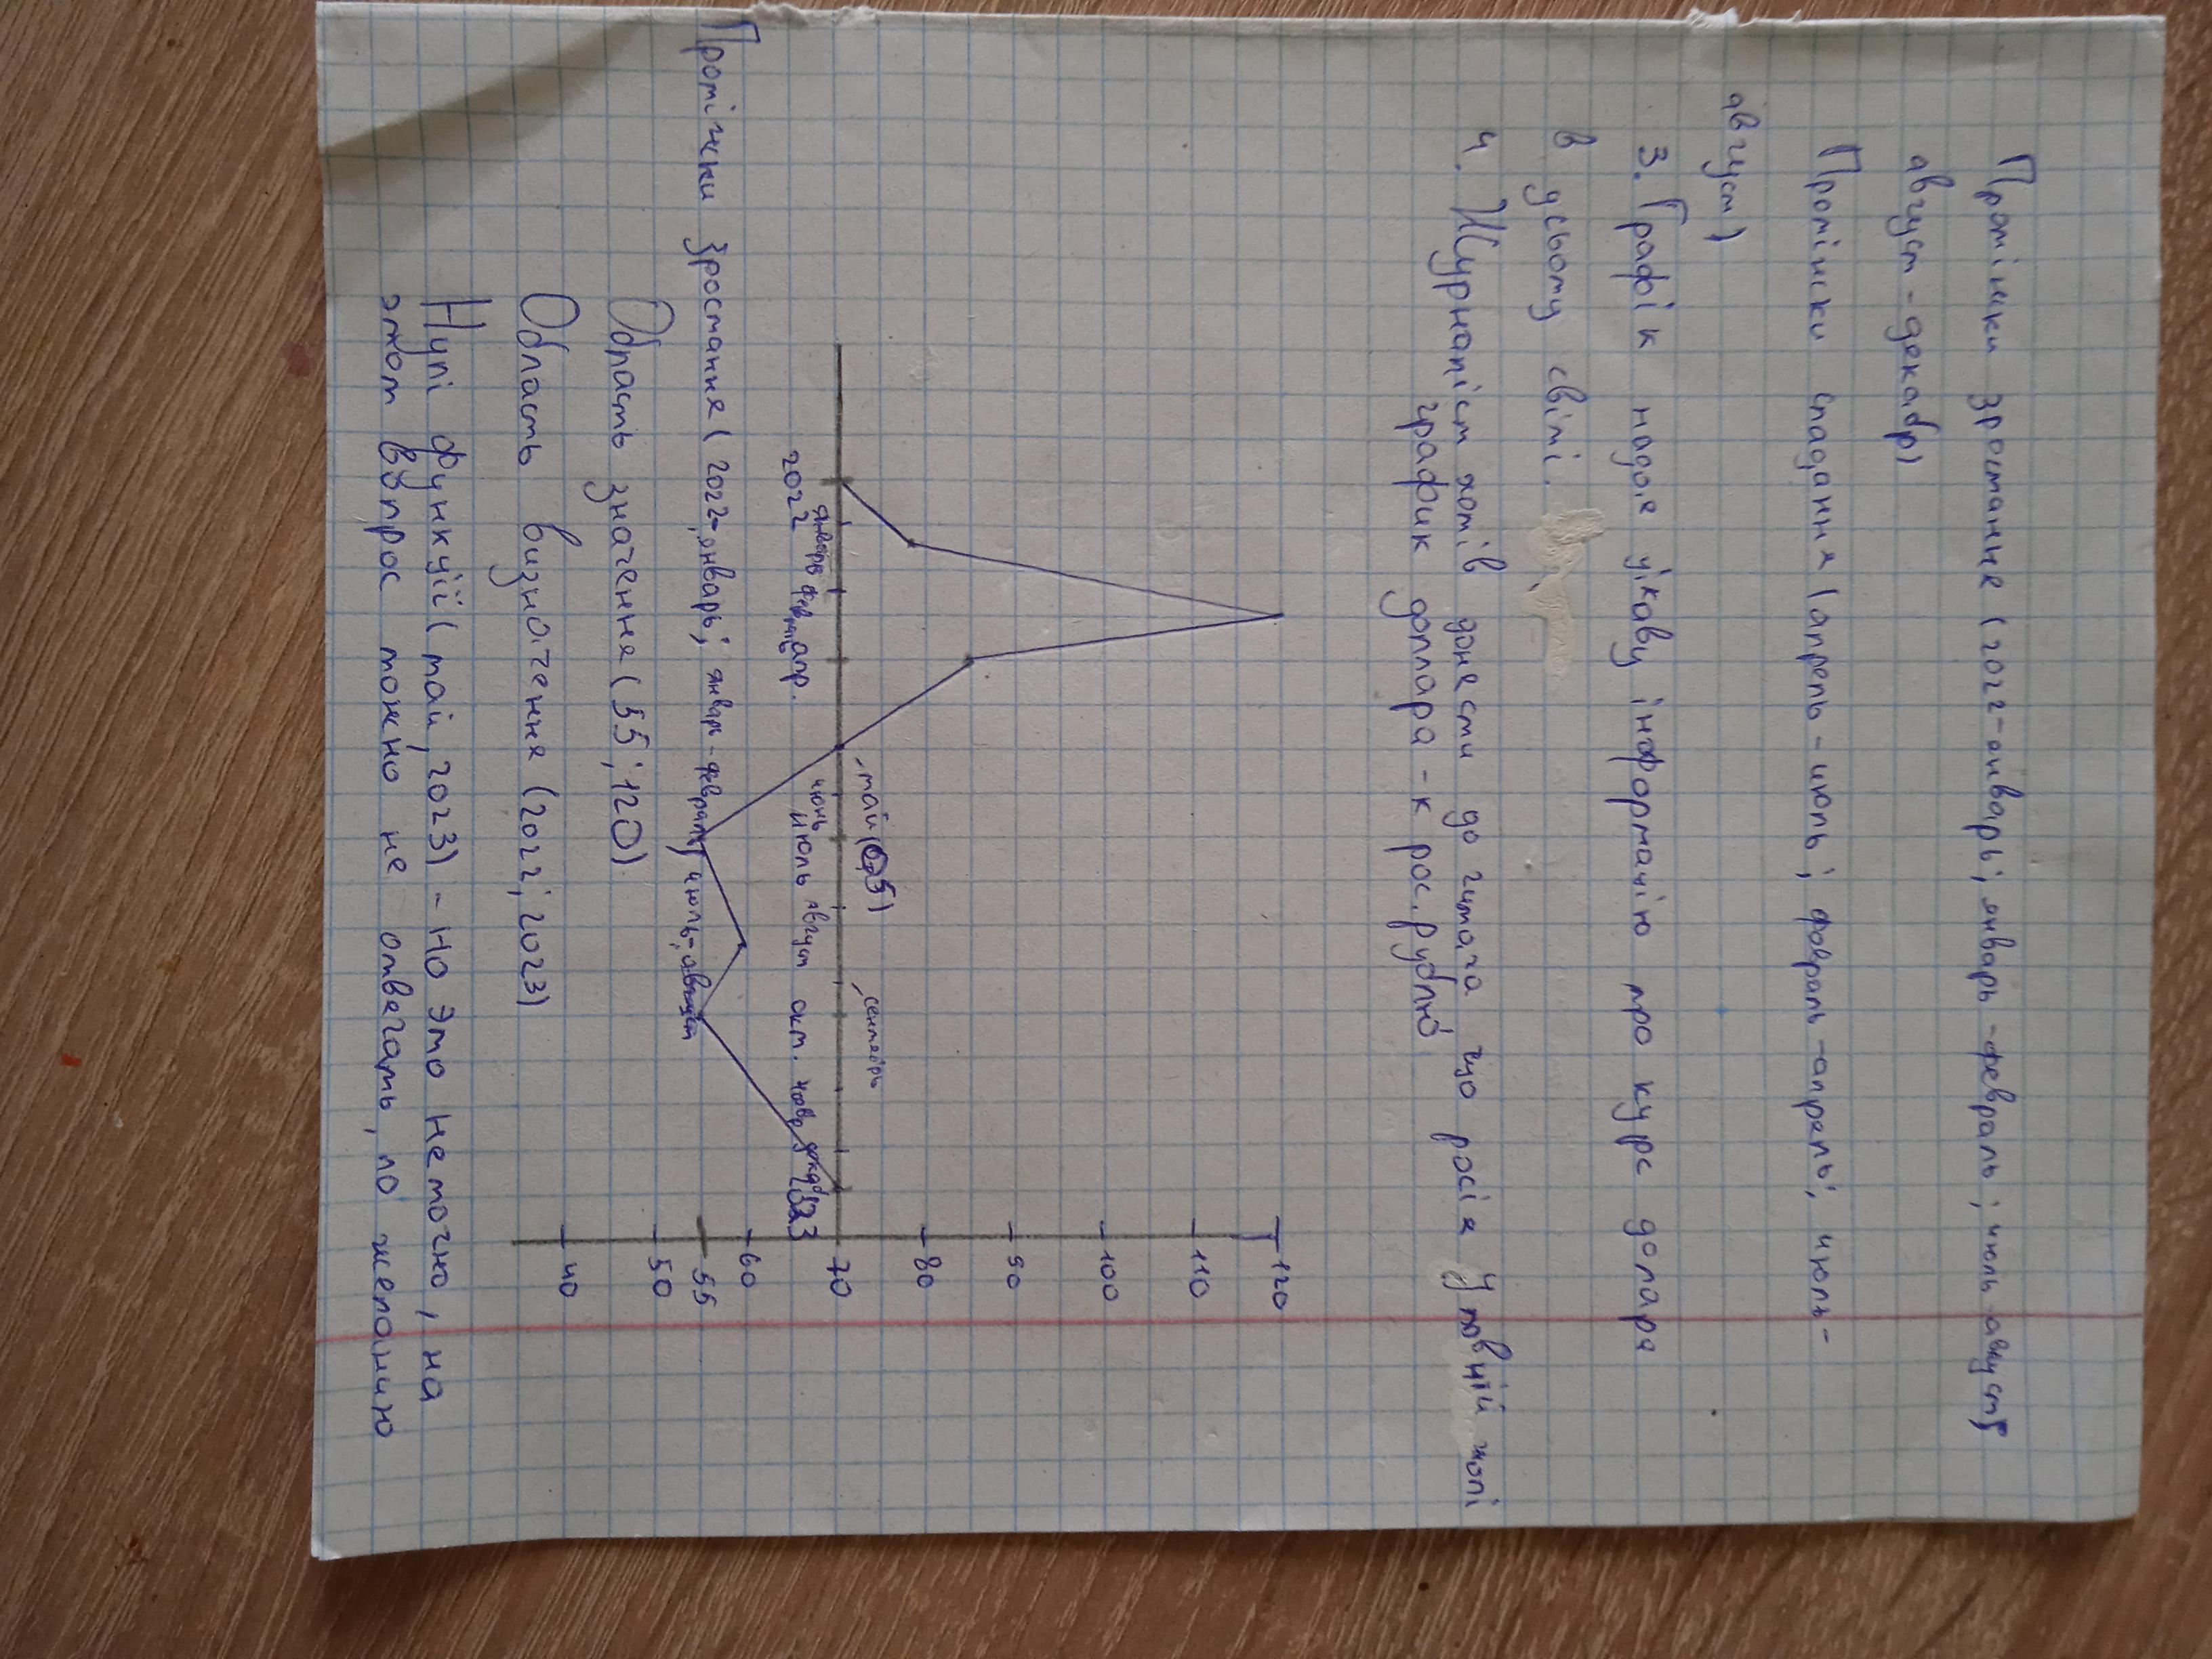 Проміжки зростання (2022-январь; январь-февраль; июль август;
август-декабр)
Проміжки спадання (апрель-июль; февраль-апрель; июль-
август)
3. Графік надає цікаву інформацію про курс долара
в усьому світі.
4. Журналіст хотів донести до читача що росія у повній жопі
график доллара - к рос. рублю
120
110
100
90
80
70
60
55
50
40
май (05)
сентябрь
2022
январь
фев
апр.
июнь
июль
август
окт.
нояб
декаб
2023
Проміжки зростання (2022-январь; январь-февраль; июль-август
Область значення (55; 120)
Область визначення (2022; 2023)
Нулі функції (май, 2023) - но это не точно, на
этот вопрос можно не отвечать, по желанию